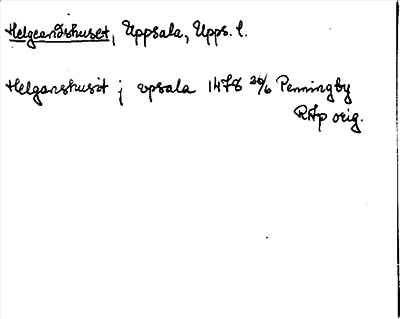 Helgeandshuset, Uppsala, Upps. l.
Helganshusit j vpsala 1478 20/6 Penningby
RAp orig.